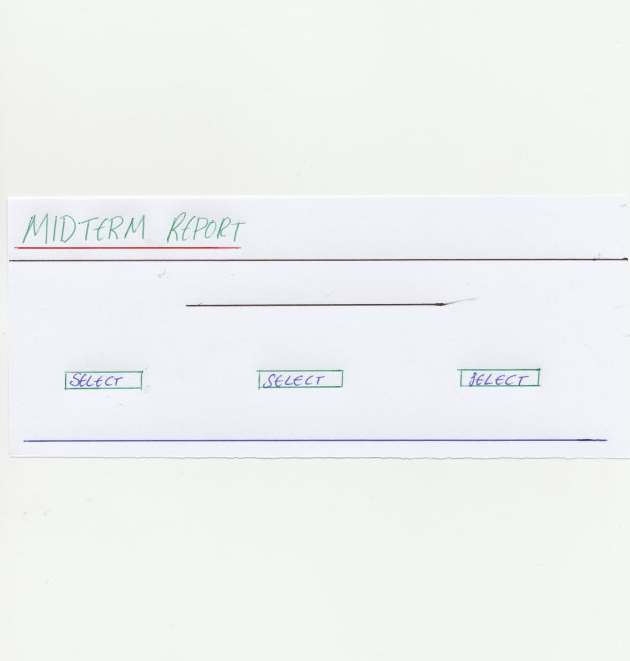 MIDTERM REPORT
SELECT SELECT SELECT